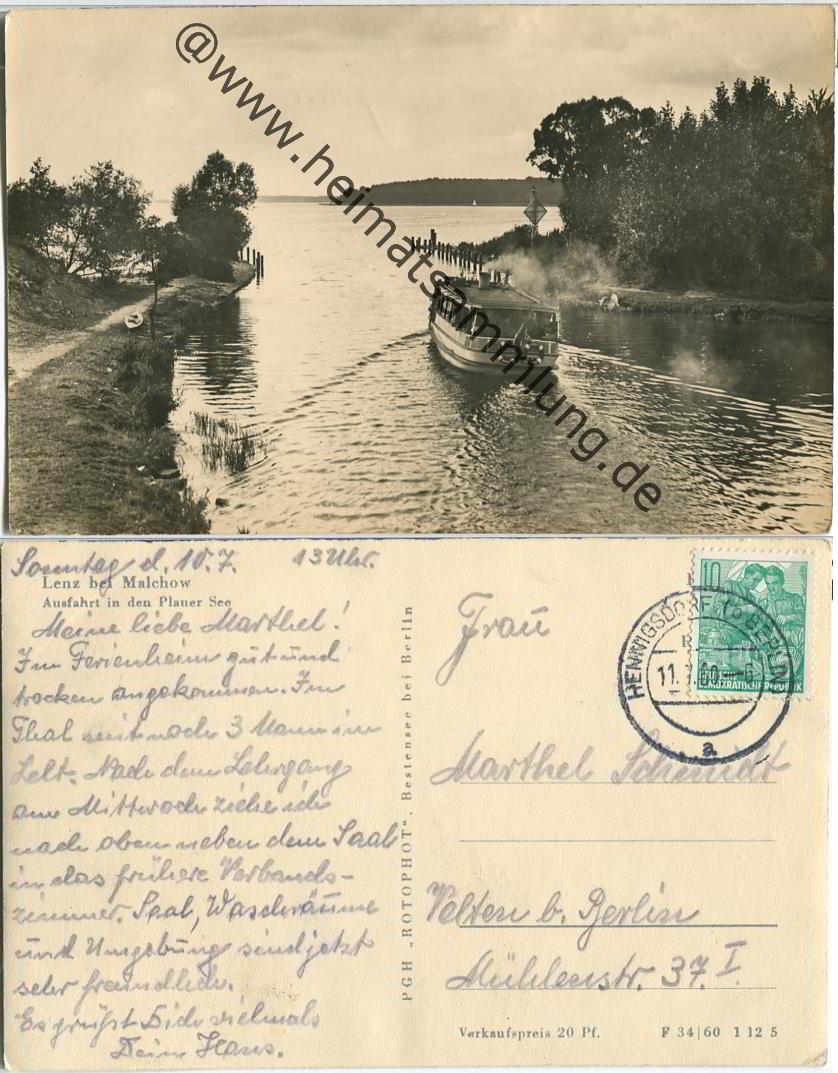 @www.heimatsammlung.de
Sonntag d. 10.7. 13 Uhr.
Lenz bei Malchow
Ausfahrt in den Plauer See
Meine liebe Marthel!
Im Ferienheim gut und
trocken angekommen. Im
Thal mit noch 3 Mann im
Zelt. Nach dem Lehrgang
am Mittwoch ziehe ich
nach oben neben dem Saal
in das frühere Verbands-
zimmer. Saal, Waschräume
und Umgebung sind jetzt
sehr freundlich.
Es grüßt Dich vielmals
Dein Hans.
PGH „ROTOPHOT“, Bestensee bei Berlin
10
HENNIGSDORF (b BERLIN)
11. 7. 60 - 6
a
DEMOKRATISCHE REPUBLIK
Frau
Marthel Schmidt
Velten b. Berlin
Mühlenstr. 37. I.
Verkaufspreis 20 Pf. F 34|60 1 12 5